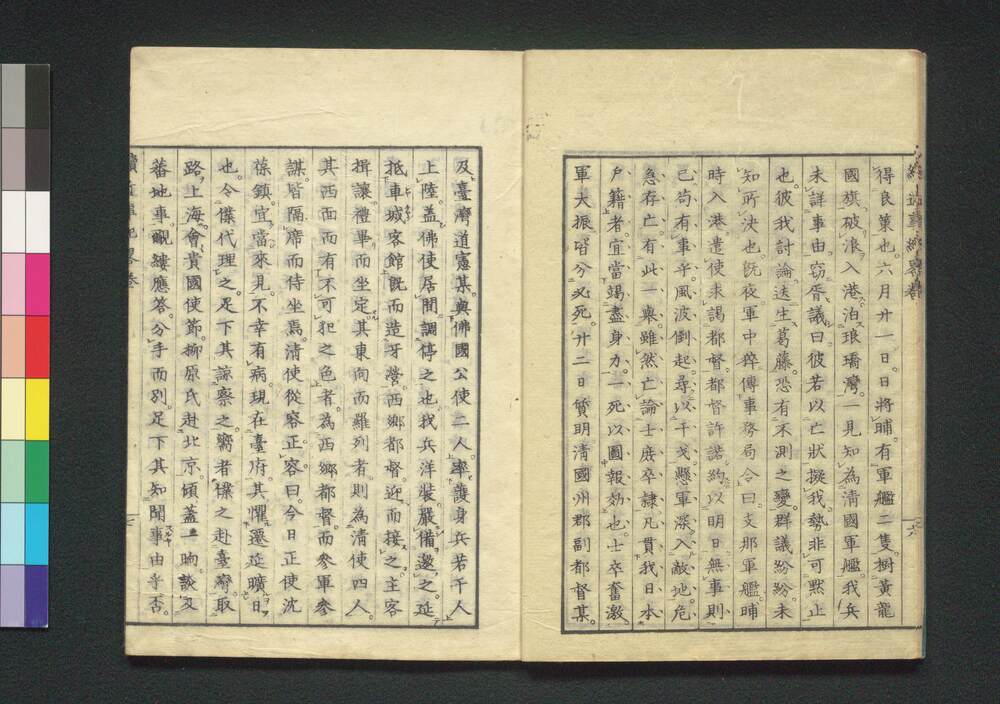 得良策也。六月廿一日。日將晡。有軍艦二隻。揭黃龍
國旗。破浪入港。泊琅璚灣。一見知為清國軍艦。我兵
未詳事由。窃胥議曰。彼若以亡狀擬我。勢非可黙止
也。彼我討論。迭生葛藤。恐有不測之變。群議紛紛。未
知所決也。既夜軍中稡傳事務局令曰。支那軍艦。晡
時入港。遣使来謁都督。都督許諾。約以明日無事則
已。苟有事乎。風波倒起。尋以干戈。懸軍深入敵地。危
急存亡。有此一擧。雖然亡論士庶卒隷。凡貫我日本
戸籍者。宜當竭盡身力。一死以圖報効也。士卒奮激。
軍大振。咨兮必死。廿二日質明。清國州郡副都督某。
及臺灣道憲某。與佛國公使二人。率護身兵若干人
上陸。蓋佛使居間調停之也。我兵洋裝。嚴備邀之。延
抵車城客館。既而造牙營。西鄉都督。迎而接之。主客
揖讓。禮畢而坐定。其東向而羅列者。則為清使四人。
其西面而有不可犯之色者。為西鄉都督。而參軍參
謀。皆隔席而侍坐焉。清使從容正容曰。今日正使沈
葆鎮。宜當來見。不幸有病。現在臺府。其懼遷延曠日
也。令僕代理之。足下其諒察之。嚮者僕之赴臺灣。取
路上海。會貴國使節。柳原氏赴北京。傾蓋一晌。談及
蕃地事。覼縷應答。分手而別。足下其知聞事由乎否。